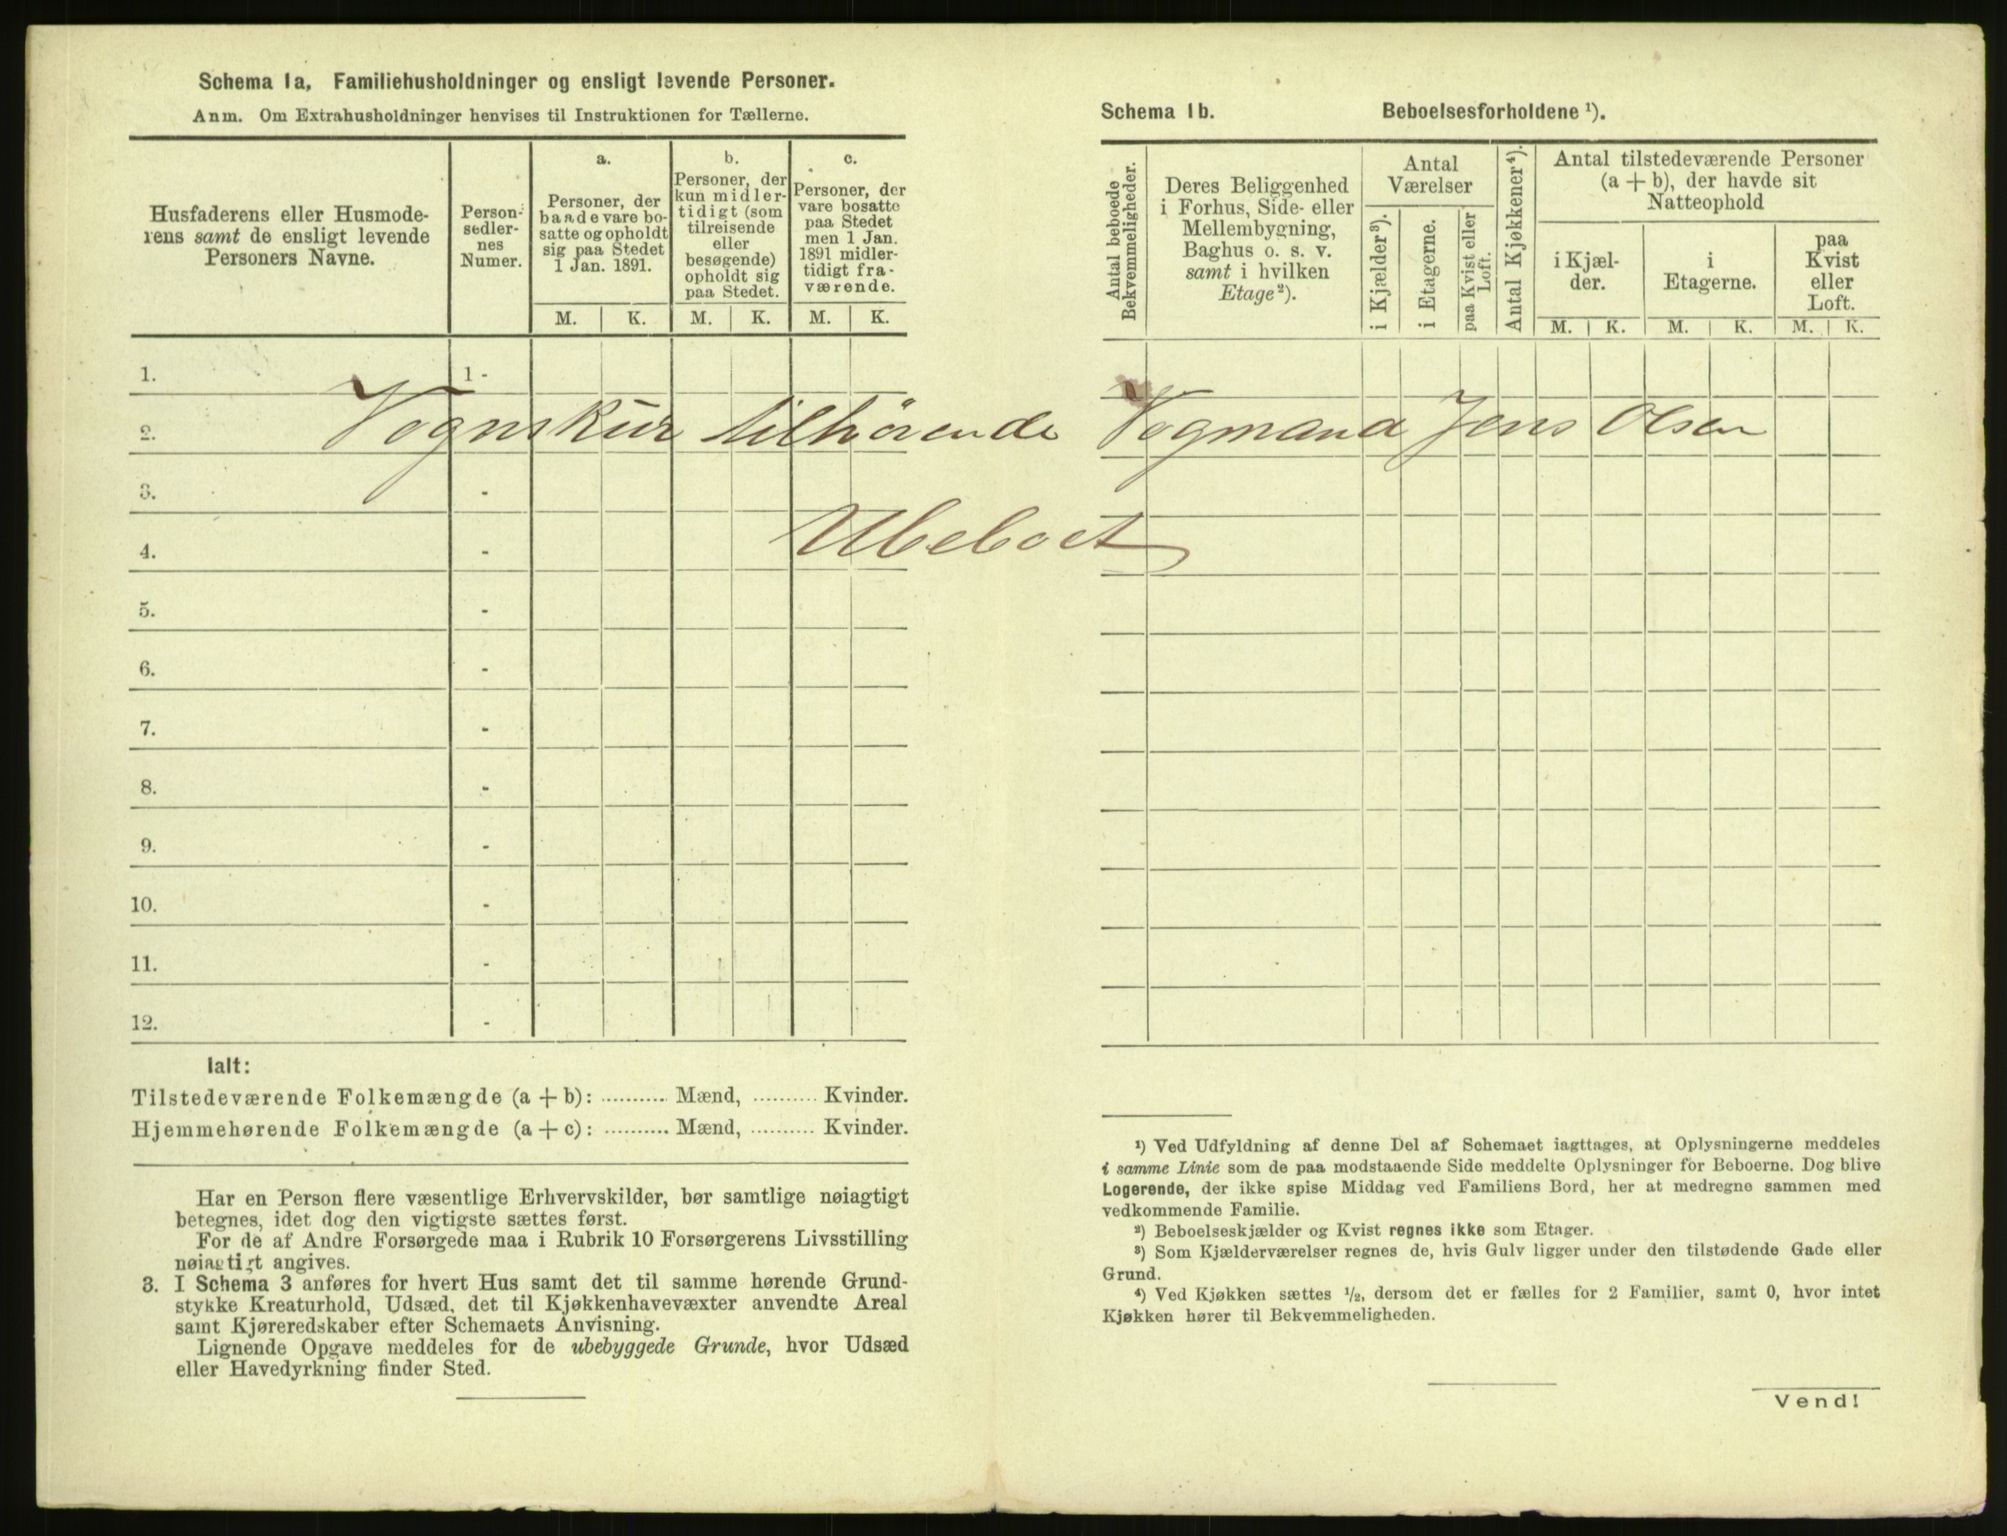 Schema 1a. Familiehusholdninger og ensligt levende Personer.
Anm. Om Extrahusholdninger henvises til Instruktionen for Tællerne.
Husfaderens eller Husmode-
rens samt de ensligt levende
Personers Navne.
Person-
sedler-
nes
Numer.
a.
Personer, der
baade vare bo-
satte og opholdt
sig paa Stedet
1 Jan. 1891.
b.
Personer, der
kun midler-
tidigt (som
tilreisende
eller
besøgende)
opholdt sig
paa Stedet.
c.
Personer, der
vare bosatte
paa Stedet
men 1 Jan.
1891 midler-
tidigt fra-
værende.
M. K. M. K. M. K.
1. 1 -
2.
Vognskur tilhørende Vogmand Jens Olsen
3. -
4. -
Ubeboet
5. -
6. -
7. -
8. -
9. -
10. -
11. -
12. -
Ialt:
Tilstedeværende Folkemængde (a + b): .......... Mænd, .......... Kvinder.
Hjemmehørende Folkemængde (a + c): .......... Mænd, .......... Kvinder.
Har en Person flere væsentlige Erhvervskilder, bør samtlige nøiagtigt
betegnes, idet dog den vigtigste sættes først.
For de af Andre Forsørgede maa i Rubrik 10 Forsørgerens Livsstilling
nøiagtigt angives.
3. I Schema 3 anføres for hvert Hus samt det til samme hørende Grund-
stykke Kreaturhold, Udsæd, det til Kjøkkenhavevæxter anvendte Areal
samt Kjøreredskaber efter Schemaets Anvisning.
Lignende Opgave meddeles for de ubebyggede Grunde, hvor Udsæd
eller Havedyrkning finder Sted.
Schema 1b. Beboelsesforholdene ¹).
Antal beboede
Bekvemmeligheder.
Deres Beliggenhed
i Forhus, Side- eller
Mellembygning,
Baghus o. s. v.
samt i hvilken
Etage²).
Antal
Værelser
i Kjælder³).
i Etagerne.
paa Kvist eller
Loft.
Antal Kjøkkener⁴).
Antal tilstedeværende Personer
(a + b), der havde sit
Natteophold
i Kjæl-
der.
i
Etagerne.
paa
Kvist
eller
Loft.
M. K. M. K. M. K.
¹) Ved Udfyldning af denne Del af Schemaet iagttages, at Oplysningerne meddeles
i samme Linie som de paa modstaaende Side meddelte Oplysninger for Beboerne. Dog blive
Logerende, der ikke spise Middag ved Familiens Bord, her at medregne sammen med
vedkommende Familie.
²) Beboelseskjælder og Kvist regnes ikke som Etager.
³) Som Kjælderværelser regnes de, hvis Gulv ligger under den tilstødende Gade eller
Grund.
⁴) Ved Kjøkken sættes ½, dersom det er fælles for 2 Familier, samt 0, hvor intet
Kjøkken hører til Bekvemmeligheden.
Vend!